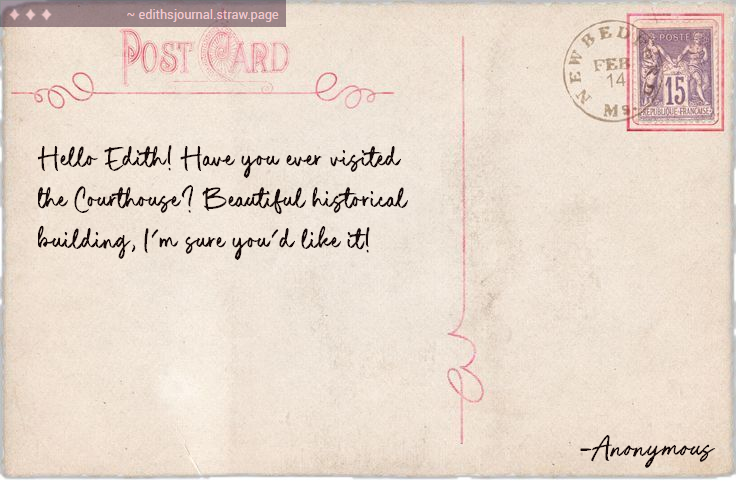 ~ edithsjournal.straw.page
POST CARD
NEW BEDFORD
FEB
14
Ms-
POSTE
15
REPUBLIQUE FRANÇAISE
Hello Edith! Have you ever visited
the Courthouse? Beautiful historical
building, I'm sure you'd like it!
-Anonymous